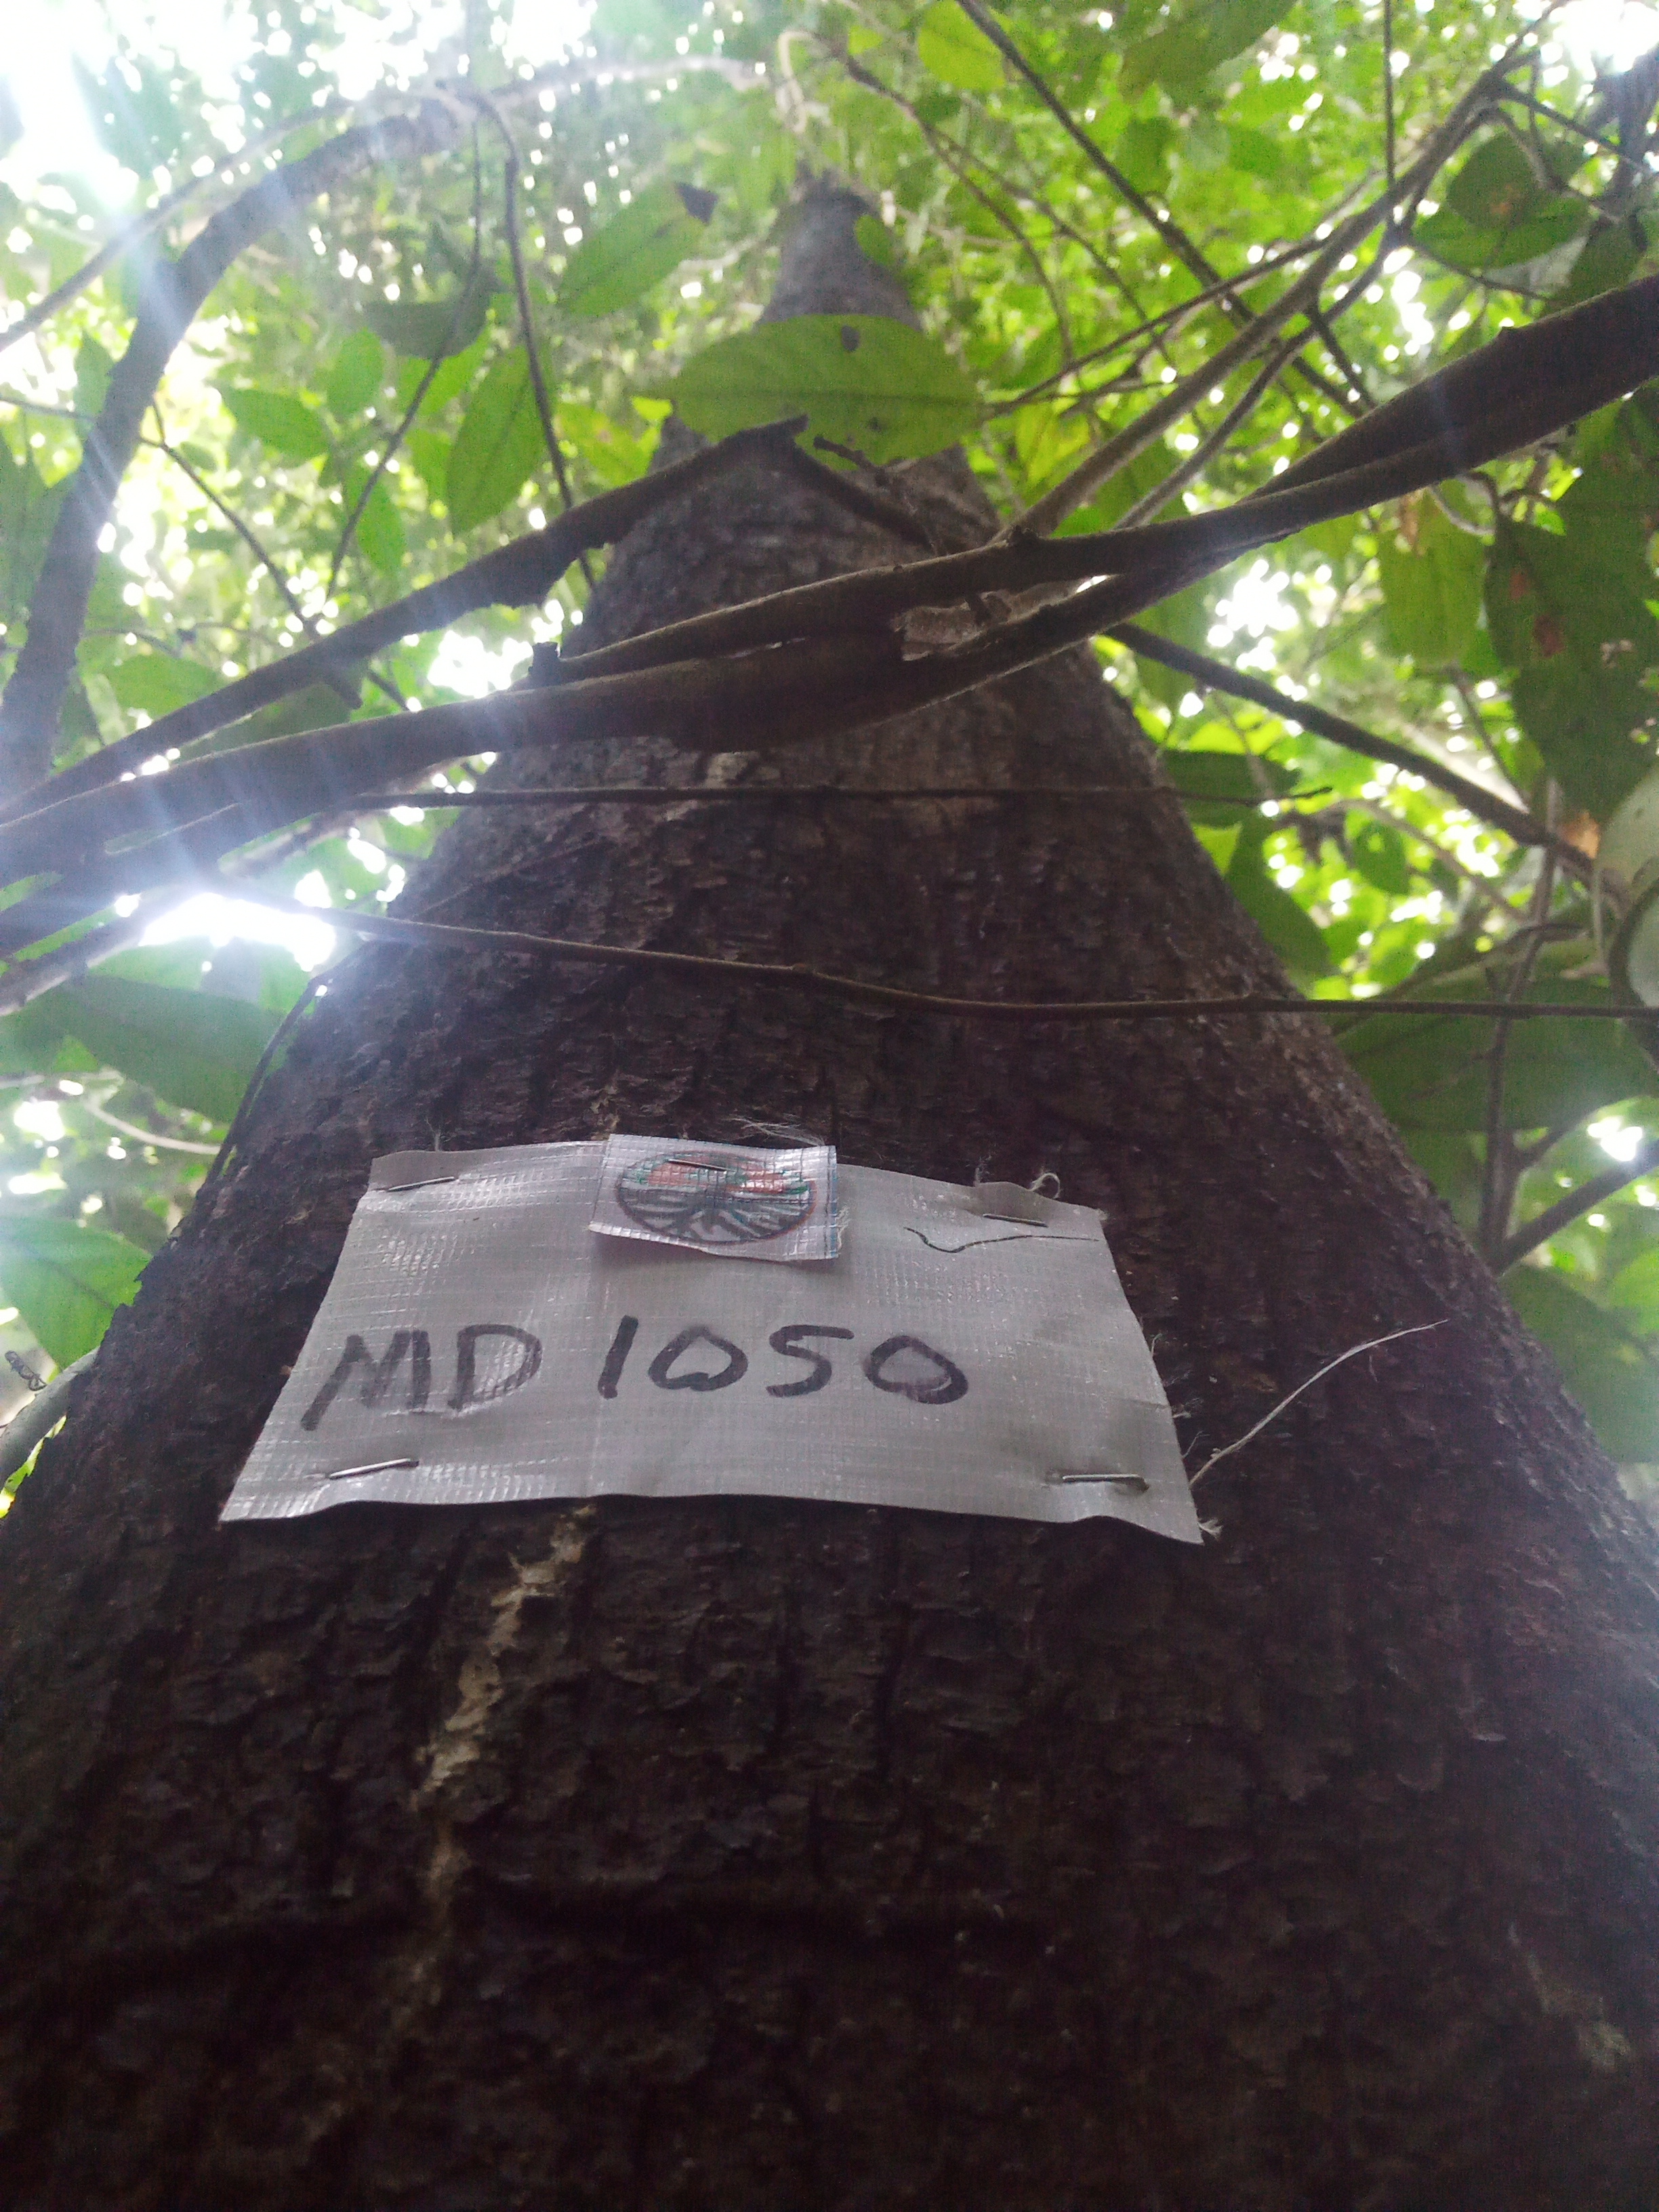 MD 1050